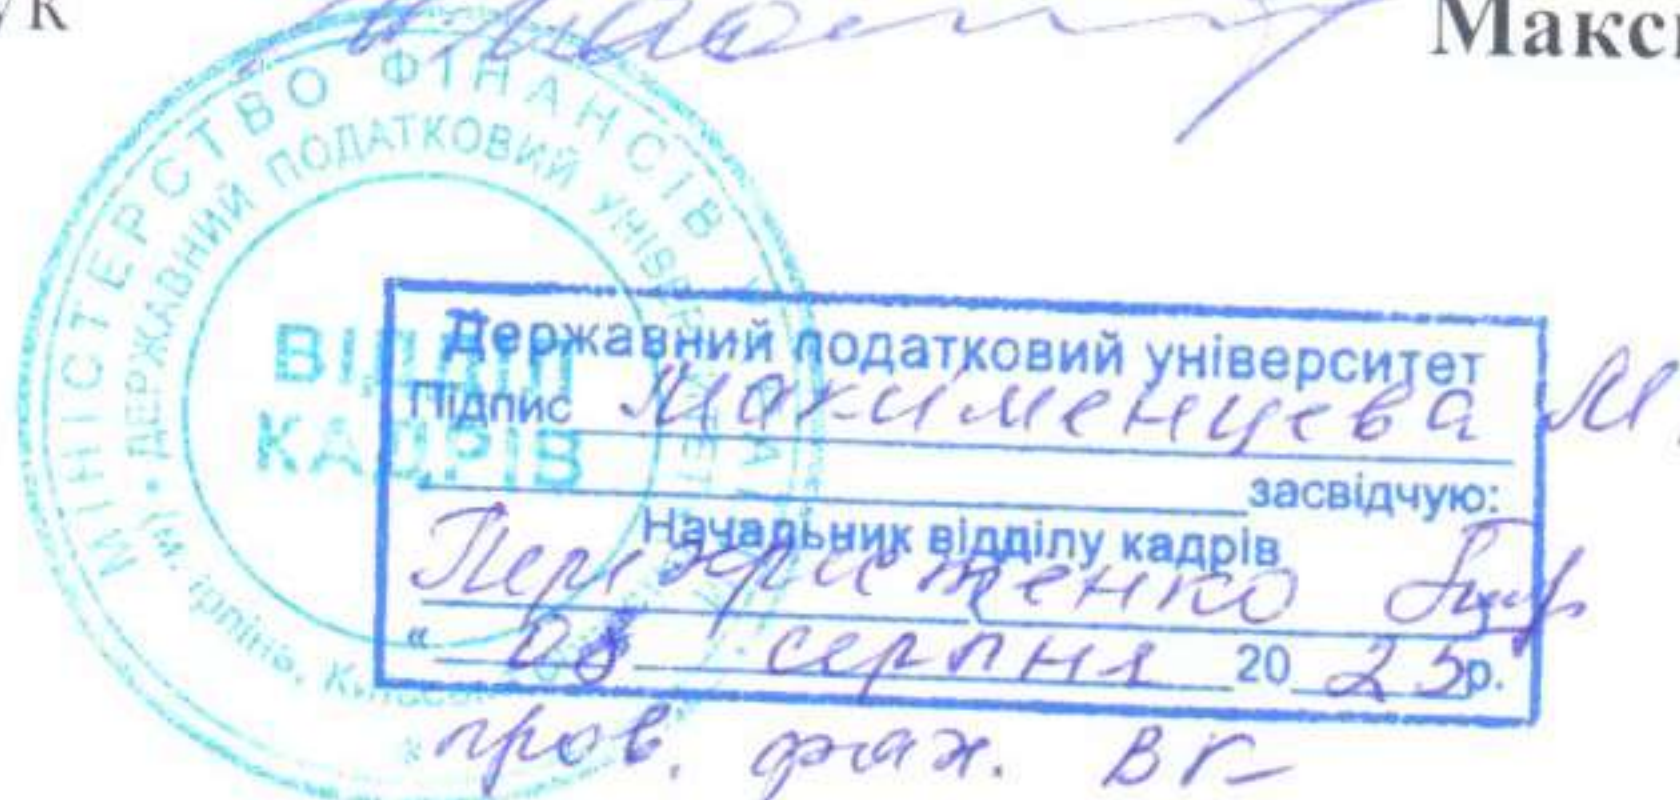 ук
Макси
МІНІСТЕРСТВО ФІНАНСІВ
ДЕРЖАВНИЙ ПОДАТКОВИЙ УНІВЕРСИТЕТ
ВІДДІЛ
КАДРІВ
Державний податковий університет
Підпис Максименцева М
засвідчую:
Начальник відділу кадрів
« 08 серпня 2025р.
пров. фах. ВК